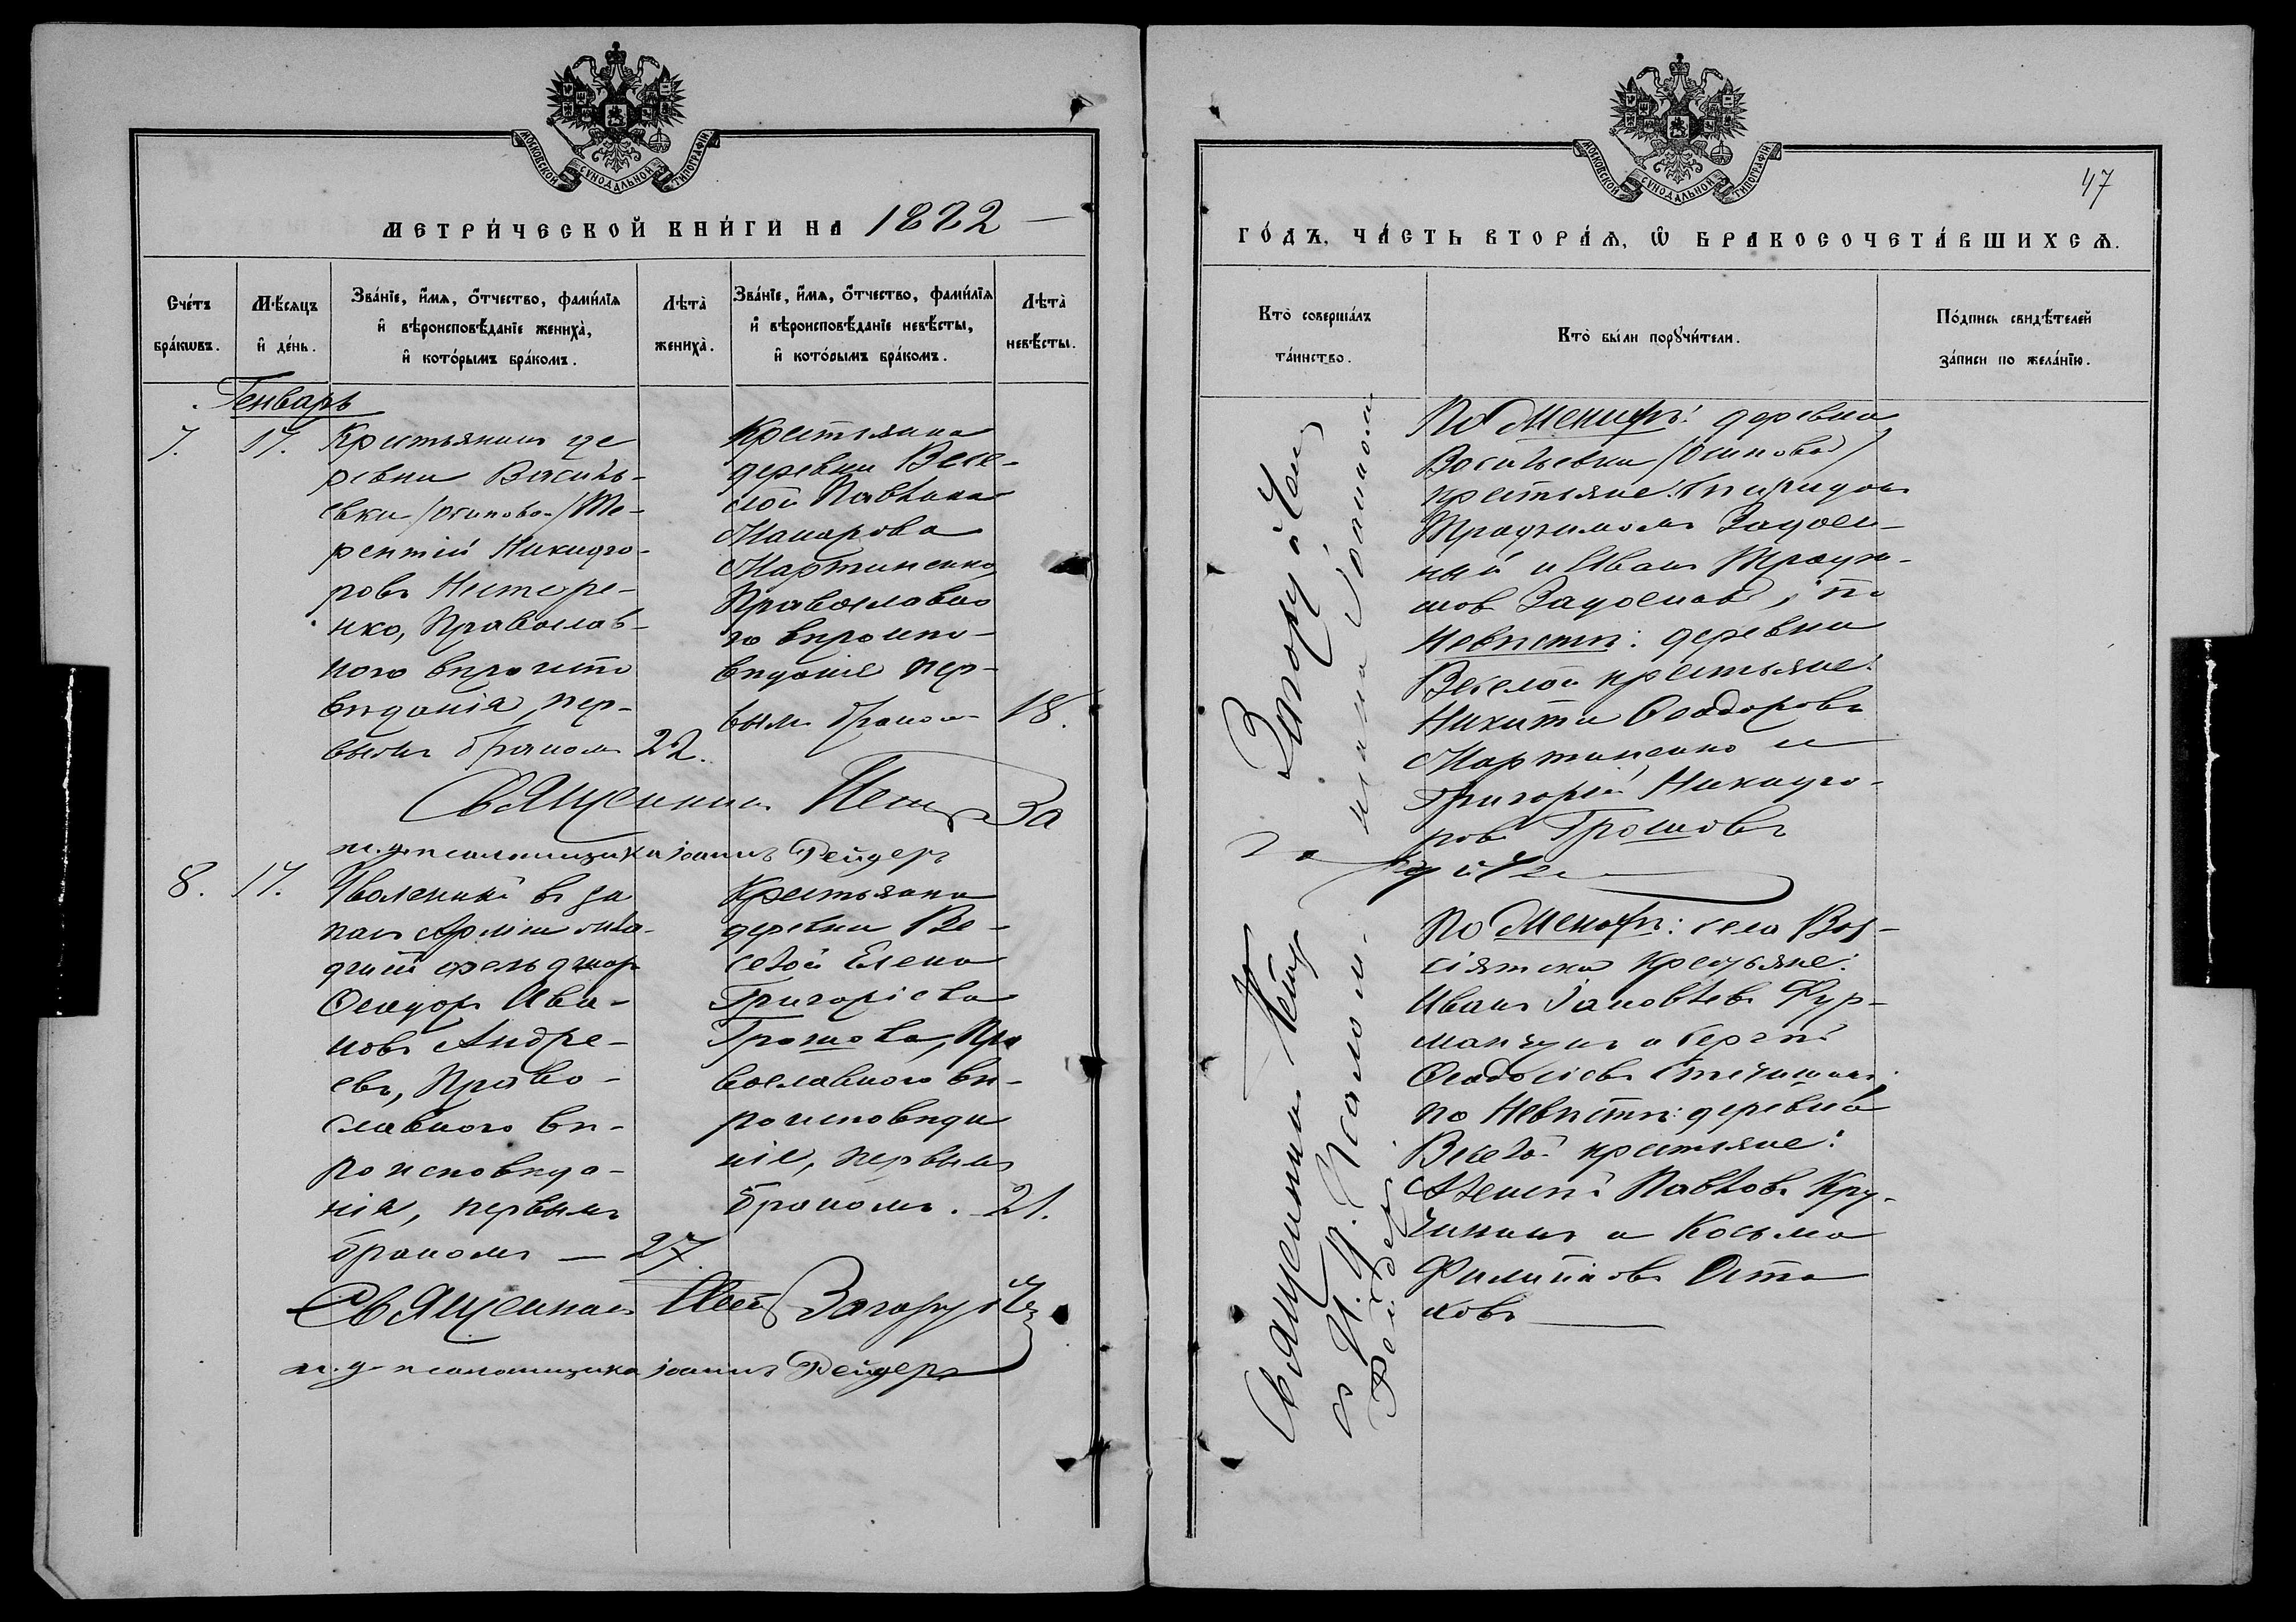 МОСКОВСКОЙ СѴНОДАЛЬНОЙ ТИПОГРАФІИ
МЕТРИ́ЧЕСКОЙ КНИ́ГИ НА 1882
Сче́тъ бра́кѡвъ.
Мѣ́сяцъ и҆ де́нь.
Зва́нїе, и҆́мѧ, ѻ҆́тчество, фами́лїѧ
и҆ вѣроисповѣ́данїе женихà,
и҆ кото́рымъ бра́комъ.
Лѣтà женихà.
Зва́нїе, и҆́мѧ, ѻ҆́тчество, фами́лїѧ
и҆ вѣроисповѣ́данїе невѣ́сты,
и҆ кото́рымъ бра́комъ.
Лѣтà невѣ́сты.
Генварь
7.
17.
Крестьянинъ де
ревни Василь-
евки /Осипова/ Те-
рентій Никифо-
ровъ Нестере-
нко, Православ-
ного вѣроиспо
вѣданія, пер-
вымъ бракомъ
22.
Крестьянка
деревни Весе-
лой Павлина
Макарова
Мартиненко,
Православно
го вѣроиспо-
вѣданіе пер-
вымъ бракомъ
18.
Священникъ Петръ За
и. д. псаломщика Іоаннъ Рейдеръ
8.
17.
Уволенный въ за
пасъ Арміи млад-
шій фельдшеръ
Феодоръ Ива-
новъ Андре-
евъ, Право-
славного вѣ-
роисповѣда-
нія, первымъ
бракомъ —
27.
Крестьянка
деревни Ве-
селой Елена
Григоріева
Грошова, Пра
вославного вѣ-
роисповѣда
ніе, первымъ
бракомъ.
21.
Священникъ Петръ Загоруйче
и. д. псаломщика Іоаннъ Рейдеръ
47
МОСКОВСКОЙ СѴНОДАЛЬНОЙ ТИПОГРАФІИ
ГО́ДЪ, ЧА́СТЬ ВТОРА́Ѧ, Ѡ҆ БРАКОСОЧЕТА́ВШИХСѦ.
Ктò соверша́лъ
та́инство.
Ктò бы́ли порꙋчи́тели.
По́дпись свидѣ́телей
за́писи по жела́нїю.
Священникъ Петръ Загоруйче
съ И. Д. Псалом-
щика Іоанномъ
Рейдеръ
По Жениху: деревни
Васильевки /Осипова/
крестьяне: Спиридонъ
Трофимовъ Задоен-
ный и Иванъ
Задоенов; по
Невѣсты: деревни
Веселой крестьяне:
Никита Феодоровъ
Мартиненко и
Григорій Никифо-
ровъ Грошовъ
руйче
По Жениху: села Воз-
сіятска крестьяне:
Иванъ Іаковлевъ Фур-
манчукъ и Сергѣй
Феодосіевъ
по Невѣсты: деревни
Веселой крестьяне:
Алексѣй Павловъ Кру-
чининъ и Косьма
Филиповъ Ота
ковъ